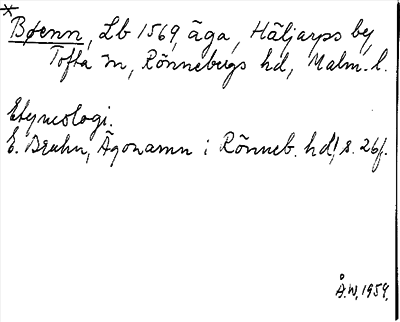 *
Bøenn, Lb 1569, äga, Häljarps by,
Tofta sn, Rönnebergs hd, Malm. l.
Etymologi.
E. Bruhn, Ägonamn i Rönneb. hd, s. 26f.
Å.W. 1959.